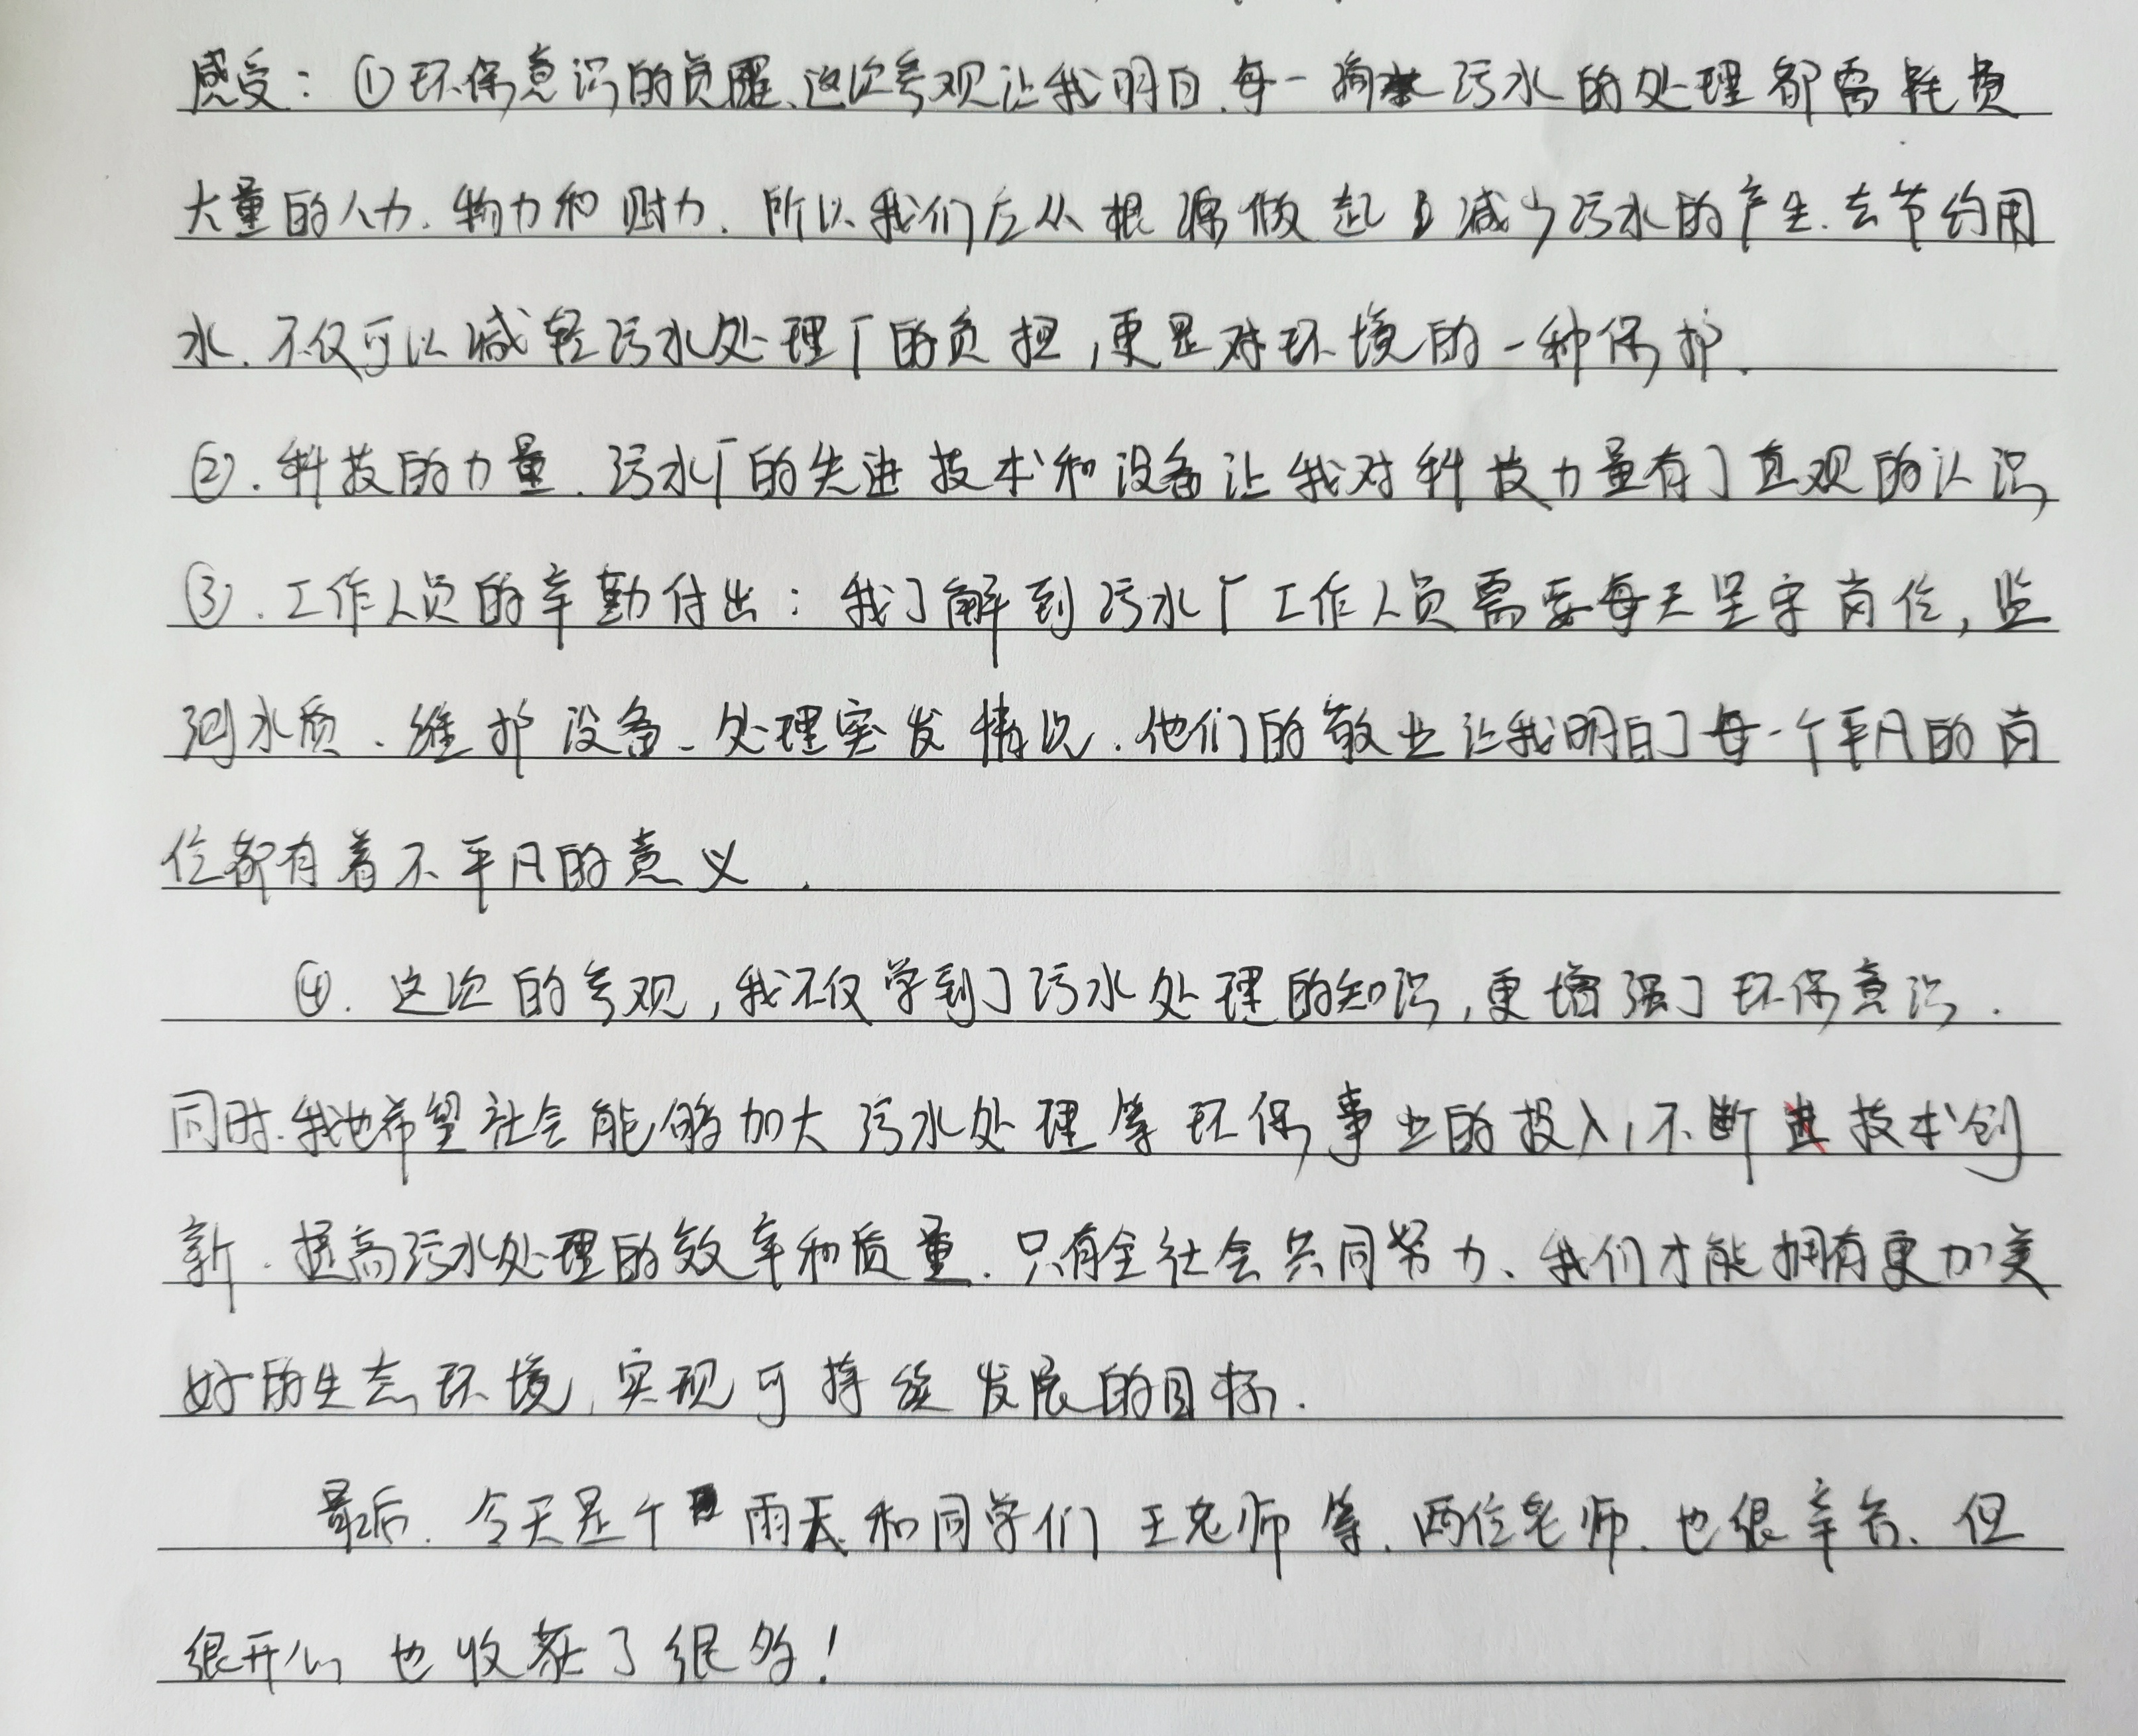 感受：①环保意识的觉醒、这次参观让我明白.每一滴污水的处理都需耗费
大量的人力.物力和财力.所以我们应从根源做起减少污水的产生.去节约用
水.不仅可以减轻污水处理厂的负担,更是对环境的一种保护.
②.科技的力量.污水厂的先进技术和设备让我对科技力量有了直观的认识,
③.工作人员的辛勤付出：我了解到污水厂工作人员需要每天坚守岗位,监
测水质、维护设备、处理突发情况.他们的敬业让我明白了每一个平凡的岗
位都有着不平凡的意义.
④.这次的参观,我不仅学到了污水处理的知识,更增强了环保意识.
同时.我也希望社会能够加大污水处理等环保事业的投入,不断技术创
新.提高污水处理的效率和质量.只有全社会共同努力、我们才能拥有更加美
好的生态环境,实现可持续发展的目标.
最后.今天是个雨天和同学们王老师等.两位老师.也很辛苦、但
很开心也收获了很多!